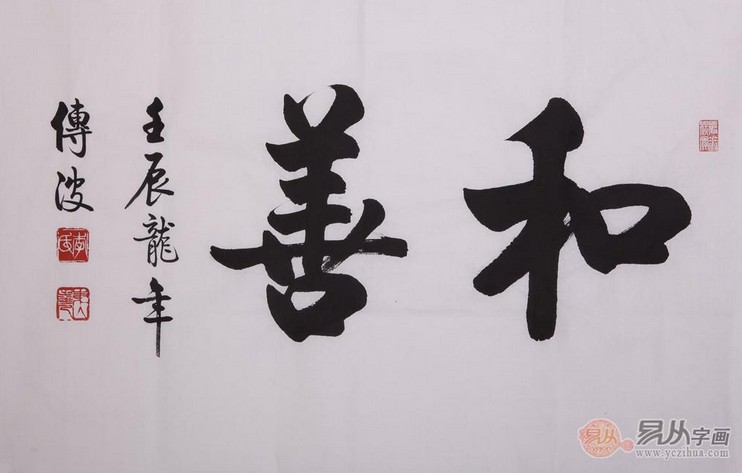 和善
壬辰龍年
傳波
易从字画
www.yczihua.com